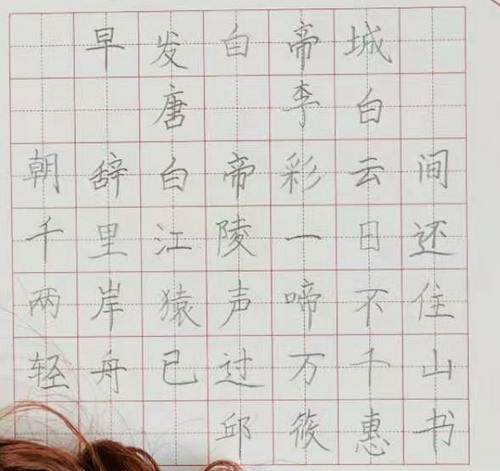 早发白帝城
唐 李白
朝辞白帝彩云间
千里江陵一日还
两岸猿声啼不住
轻舟已过万千山
邱筱惠书